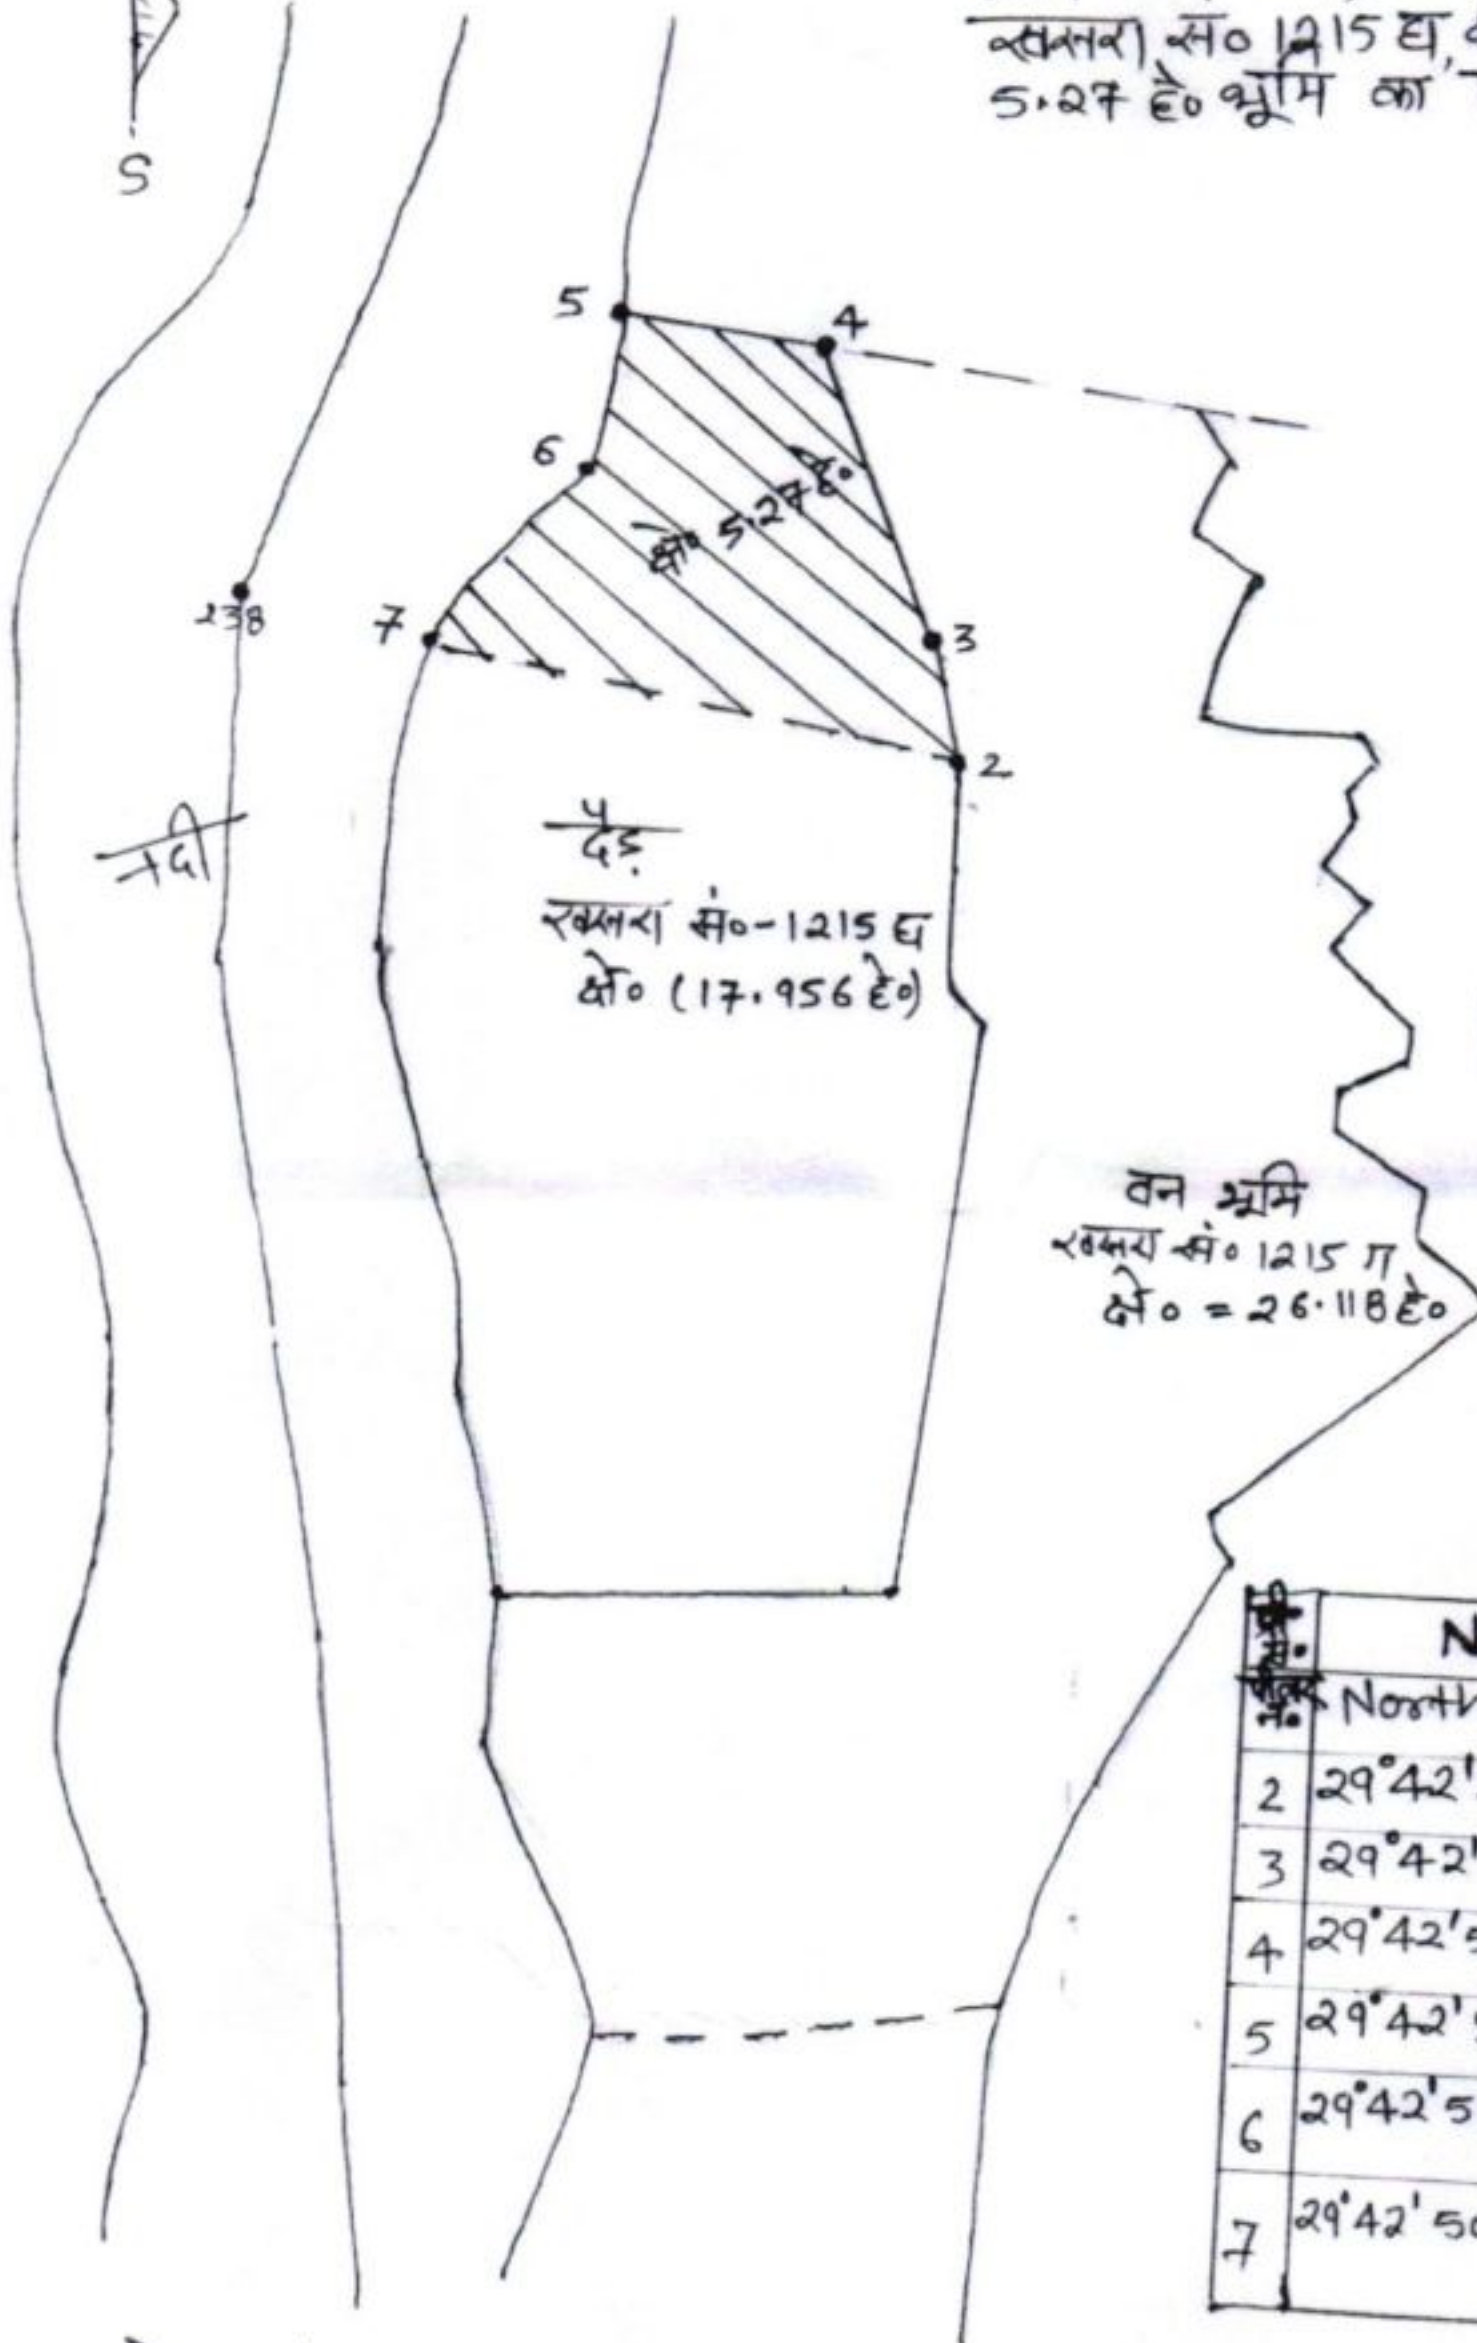 खसरा सं० 1215 घ,
5.27 हे० भूमि का
S
5
4
6
क्षे० 5.27 हे०
238
7
3
2
नदी
खसरा सं०-1215 घ
क्षे० (17.956 हे०)
वन भूमि
खसरा सं० 1215 ग
क्षे० = 26.118 हे०
N
North
2 29°42'
3 29°42'
4 29°42'5
5 29°42'5
6 29°42'5
7 29°42'50